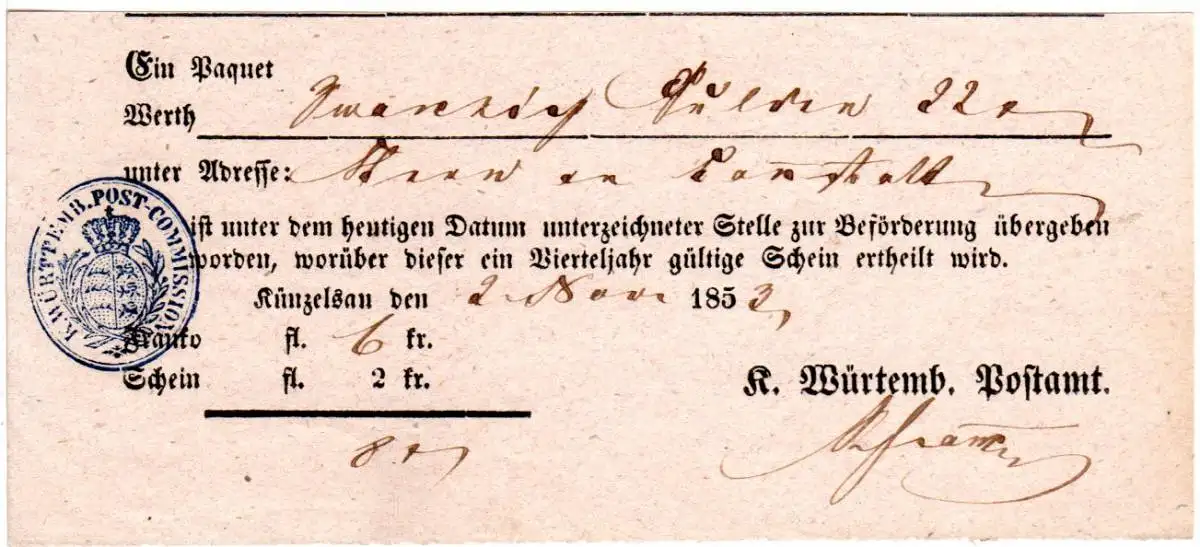 Ein Paquet
Werth Zwanzig Gulden 22 x
unter Adresse: Stern in Cannstatt
ist unter dem heutigen Datum unterzeichneter Stelle zur Beförderung übergeben
worden, worüber dieser ein Vierteljahr gültige Schein ertheilt wird.
Künzelsau den 2 Nov. 1853
Franko fl. 6 kr.
Schein fl. 2 kr.
8 x
K. Würtemb. Postamt.
K. WÜRTTEMB. POST-COMMISSION